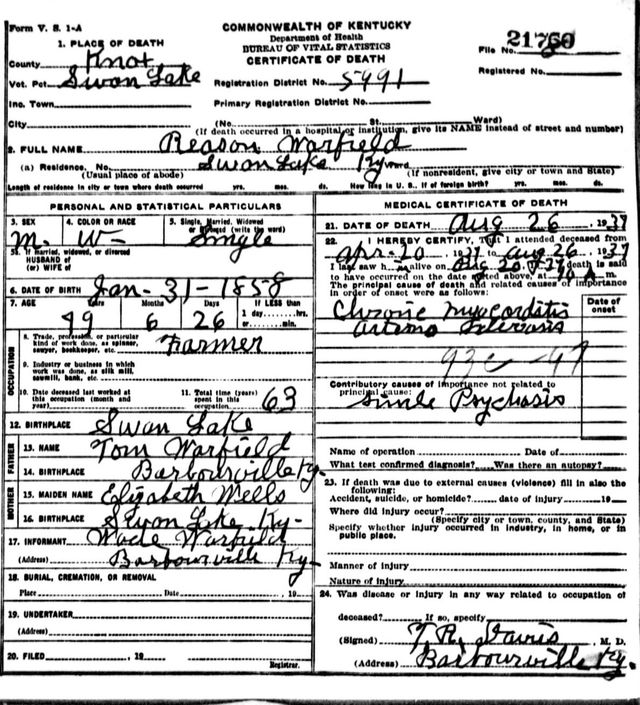 Form V. S. 1-A
COMMONWEALTH OF KENTUCKY
Department of Health
BUREAU OF VITAL STATISTICS
CERTIFICATE OF DEATH
File No. 21760
Registered No.
1. PLACE OF DEATH
County Knox
Vot. Pct. Swan Lake
Registration District No. 5991
Inc. Town
Primary Registration District No.
City (No. St. Ward)
(If death occurred in a hospital or institution, give its NAME instead of street and number)
2. FULL NAME Reason Warfield
(a) Residence. No. Swan Lake Ky Ward
(Usual place of abode) (If nonresident, give city or town and State)
Length of residence in city or town where death occurred yrs. mos. ds. How long in U. S., if of foreign birth? yrs. mos. ds.
PERSONAL AND STATISTICAL PARTICULARS
3. SEX M. 4. COLOR OR RACE W- 5. Single, Married, Widowed or Divorced (write the word) Single
5a. If married, widowed, or divorced
HUSBAND of
(or) WIFE of
6. DATE OF BIRTH Jan-31-1858
7. AGE Years Months Days If LESS than
79 6 26 1 day hrs. or min.
OCCUPATION
8. Trade, profession, or particular kind of work done, as spinner, sawyer, bookkeeper, etc. Farmer
9. Industry or business in which work was done, as silk mill, sawmill, bank, etc.
10. Date deceased last worked at this occupation (month and year)
11. Total time (years) spent in this occupation 63
12. BIRTHPLACE Swan Lake
FATHER
13. NAME Tom Warfield
14. BIRTHPLACE Barbourville Ky-
MOTHER
15. MAIDEN NAME Elizabeth Mells
16. BIRTHPLACE Swan Lake Ky-
17. INFORMANT Wade Warfield
(Address) Barbourville Ky-
18. BURIAL, CREMATION, OR REMOVAL
Place Date , 19
19. UNDERTAKER
(Address)
20. FILED , 19
Registrar.
MEDICAL CERTIFICATE OF DEATH
21. DATE OF DEATH Aug 26, 1937
22. I HEREBY CERTIFY, That I attended deceased from
Apr-20, 1937 to Aug 26, 1937
I last saw h alive on Aug 20, 1937 death is said
to have occurred on the date stated above, at A m.
The principal cause of death and related causes of importance in order of onset were as follows:
Date of onset
Chronic myocarditis
93c-97
Contributory causes of importance not related to principal cause:
Psychosis
Name of operation Date of
What test confirmed diagnosis? Was there an autopsy?
23. If death was due to external causes (violence) fill in also the following:
Accident, suicide, or homicide? date of injury 19
Where did injury occur?
(Specify city or town, county, and State)
Specify whether injury occurred in industry, in home, or in public place.
Manner of injury
Nature of injury
24. Was disease or injury in any way related to occupation of deceased? If so, specify
(Signed) T. R. Davis, M. D.
(Address) Barbourville Ky.